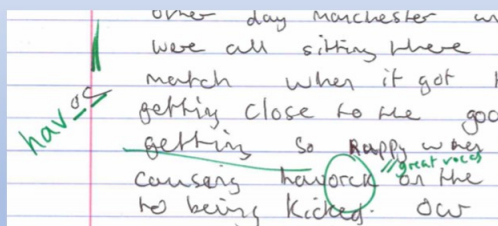 other day manchester
were all sitting there
match when it got
getting close to the
getting so happy when
great vocab
causing havorck on the
to being kicked. our
havoc